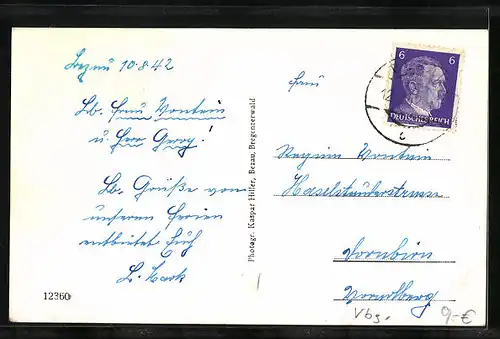 Bezau 10.8.42
Lb. Frau Vonbrin
u. Herr Georg!
Lb. Grüße von
unseren Ferien
entbietet Euch
12360
Photogr. Kaspar Hiller, Bezau, Bregenzerwald
6 6
DEUTSCHES REICH
Frau
Haselstauderstrasse
Dornbirn
Vorarlberg
Vbg.
9.-€